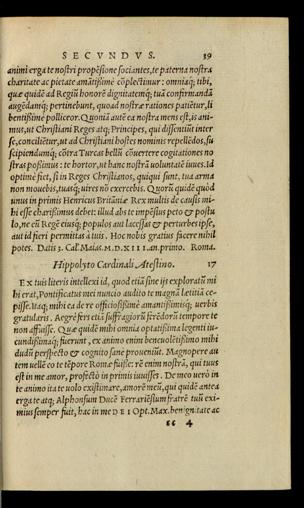 SECVNDVS. 19
animi erga te nostri propēsione sociantes, te paterna nostra
charitate ac pietate amātißimē cōplectimur: omniaq; tibi,
quæ quidē ad Regiū honorē dignitatemq; tuā confirmandā
augēdamq; pertinebunt, quoad nostræ rationes patiētur, li
bentißime pollicemur. Quoniā autē ea nostra mens est, is ani-
mus, ut Christiani Reges atq; Principes, qui dissentiūt inter
se, concilietur, ut ad Christiani hostes nominis repellēdos, su
scipiendumq; cōtra Turcas bellū cōuertere cogitationes no
stras poßimus: te hortor, ut hanc nostrā voluntatē iuues. Id
optimè fiet, si in Reges Christianos, quiqui sunt, tua arma
non mouebis, tuasq; uires nō exercebis. Quorū quidē quòd
unus in primis Henricus Britāniæ Rex multis de causis mi-
hi esse charißimus debet: illud abs te impēsius peto & postu
lo, ne eū Regē eiusq; populos aut lacessas & perturbes ipse,
aut id fieri permittas à tuis. Hoc nobis gratius facere nihil
potes. Datis 3. Cal. Maias. M.D.XIII. an. primo. Roma.
Hippolyto Cardinali Atestino. 17
EX tuis literis intellexi id, quod etiā sine ijs exploratū mi
hi erat, Pontificatus mei nuncio audito te magnā lætitiā ce-
pisse. Itaq; mihi ea de re officiosißimè amantißimisq; uerbis
gratularis. Aegrè fers etiā suffragiorū ferēdorū tempore te
non affuisse. Quæ quidē mihi omnia optatißima legenti iu-
cundißimaq; fuerunt, ex animo enim beneuolētißimo mihi
dudū perspecto & cognito sane proueniūt. Magnopere au
tem uellē eo te tēpore Romæ fuisse: rē enim nostrā, qui tuus
est in me amor, profectò in primis iuuisses. De meo uerò in
te animo ita te uolo existimare, amorē meū, qui quidē antea
erga te atq; Alphonsum Ducē Ferrariēsium fratrē tuū exi-
mius semper fuit, hac in me DEI Opt. Max. benignitate ac
cc 4